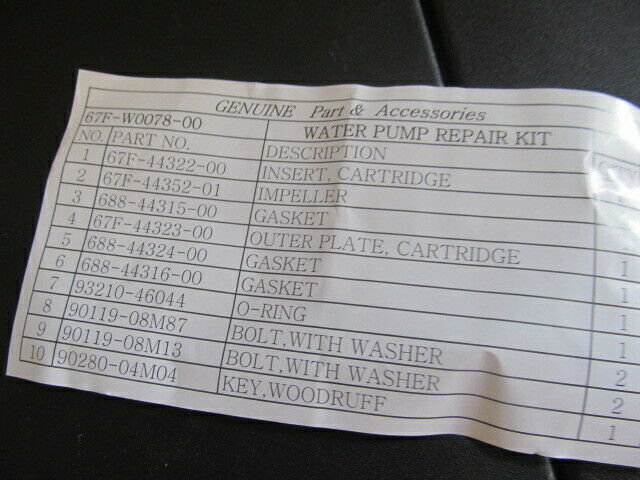 GENUINE Part & Accessories
67F-W0078-00 WATER PUMP REPAIR KIT
NO. PART NO. DESCRIPTION
1 67F-44322-00 INSERT, CARTRIDGE
2 67F-44352-01 IMPELLER
3 688-44315-00 GASKET 1
4 67F-44323-00 OUTER PLATE, CARTRIDGE 1
5 688-44324-00 GASKET 1
6 688-44316-00 GASKET 1
7 93210-46044 O-RING 1
8 90119-08M87 BOLT,WITH WASHER 2
9 90119-08M13 BOLT,WITH WASHER 2
10 90280-04M04 KEY,WOODRUFF 1